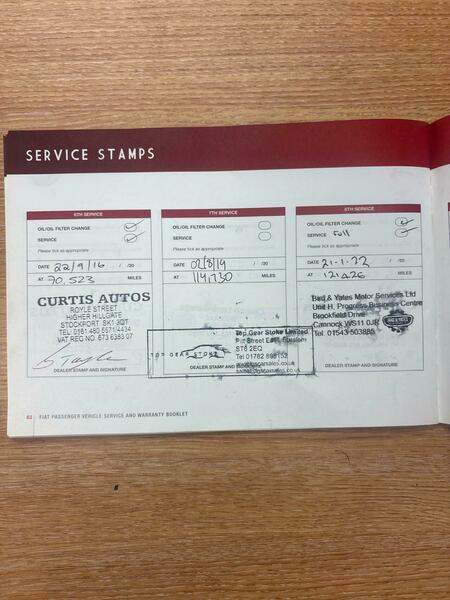 SERVICE STAMPS
6TH SERVICE
OIL/OIL FILTER CHANGE
SERVICE
Please tick as appropriate
DATE 22/9/16 / /20
AT 90,523 MILES
CURTIS AUTOS
ROYLE STREET
HIGHER HILLGATE
STOCKPORT SK1 3QT
TEL 0161 480 5571/4434
VAT REG NO. 673 6383 07
DEALER STAMP AND SIGNATURE
7TH SERVICE
OIL/OIL FILTER CHANGE
SERVICE
Please tick as appropriate
DATE 02/8/19 / /20
AT 114,730 MILES
TOP GEAR STOKE
Top Gear Stoke Limited
Street
ST6 2EQ
Tel 01782
DEALER STAMP AND
8TH SERVICE
OIL/OIL FILTER CHANGE
SERVICE Full
Please tick as appropriate
DATE 21-1-22 / /20
AT 121426 MILES
Bird & Yates Motor Services Ltd
Unit H. Progress Business Centre
Brookfield Drive
Cannock WS11 0JR
Tel. 01543 503885
DEALER STAMP AND SIGNATURE
62 FIAT PASSENGER VEHICLE SERVICE AND WARRANTY BOOKLET